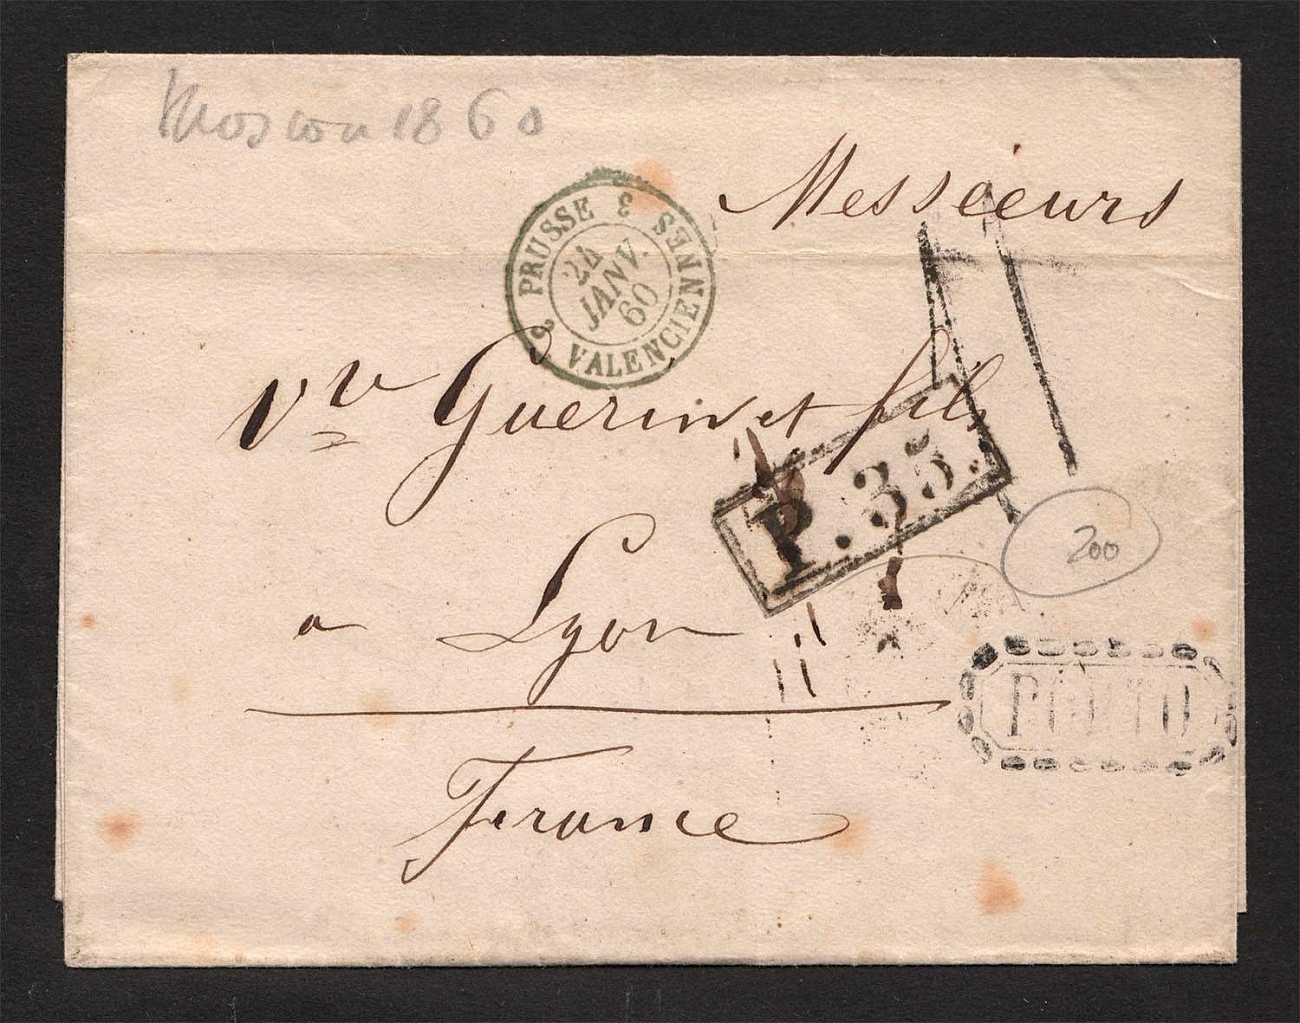 Moscou 1860
Messieurs
2 PRUSSE 3 VALENCIENNES
24
JANV.
60
Vve Guerin et fils
P. 35.
200
a Lyon
PORTO
France